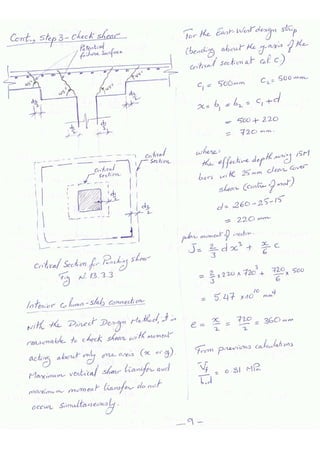 Cont., Step 3 - check shear
Potential
failure surfaces
45° 45° 45° 45°
d/2 d/2
critical
section
critical
section
d/2
d/2
Critical Section for Punching shear
Fig N.13.3.3
Interior column-slab connection
With the Direct Design Method, it is
reasonable to check shear with moment
acting about only one axis (x or y)
Maximum vertical shear transfer and
maximum moment transfer do not
occur simultaneously.
For the East-West design strip
(bending about the y-axis of the
critical section at Col C)
C₁ = 500mm C₂ = 500mm
x = b₁ = b₂ = C₁ + d
= 500 + 220
= 720 mm.
where:
the effective depth using 15M
bars with 25 mm clear cover
shear (center of mat)
d = 260 - 25 - 15
= 220 mm
polar moment of inertia.
J = 2/3 d x³ + x/6 c
= 2/3 x 220 x 720³ + 720/6 x 500
= 5.47 x 10¹⁰ mm⁴
e = x/2 = 720/2 = 360 mm
From previous calculations
Vf/b.d = 0.81 MPa
- 9 -